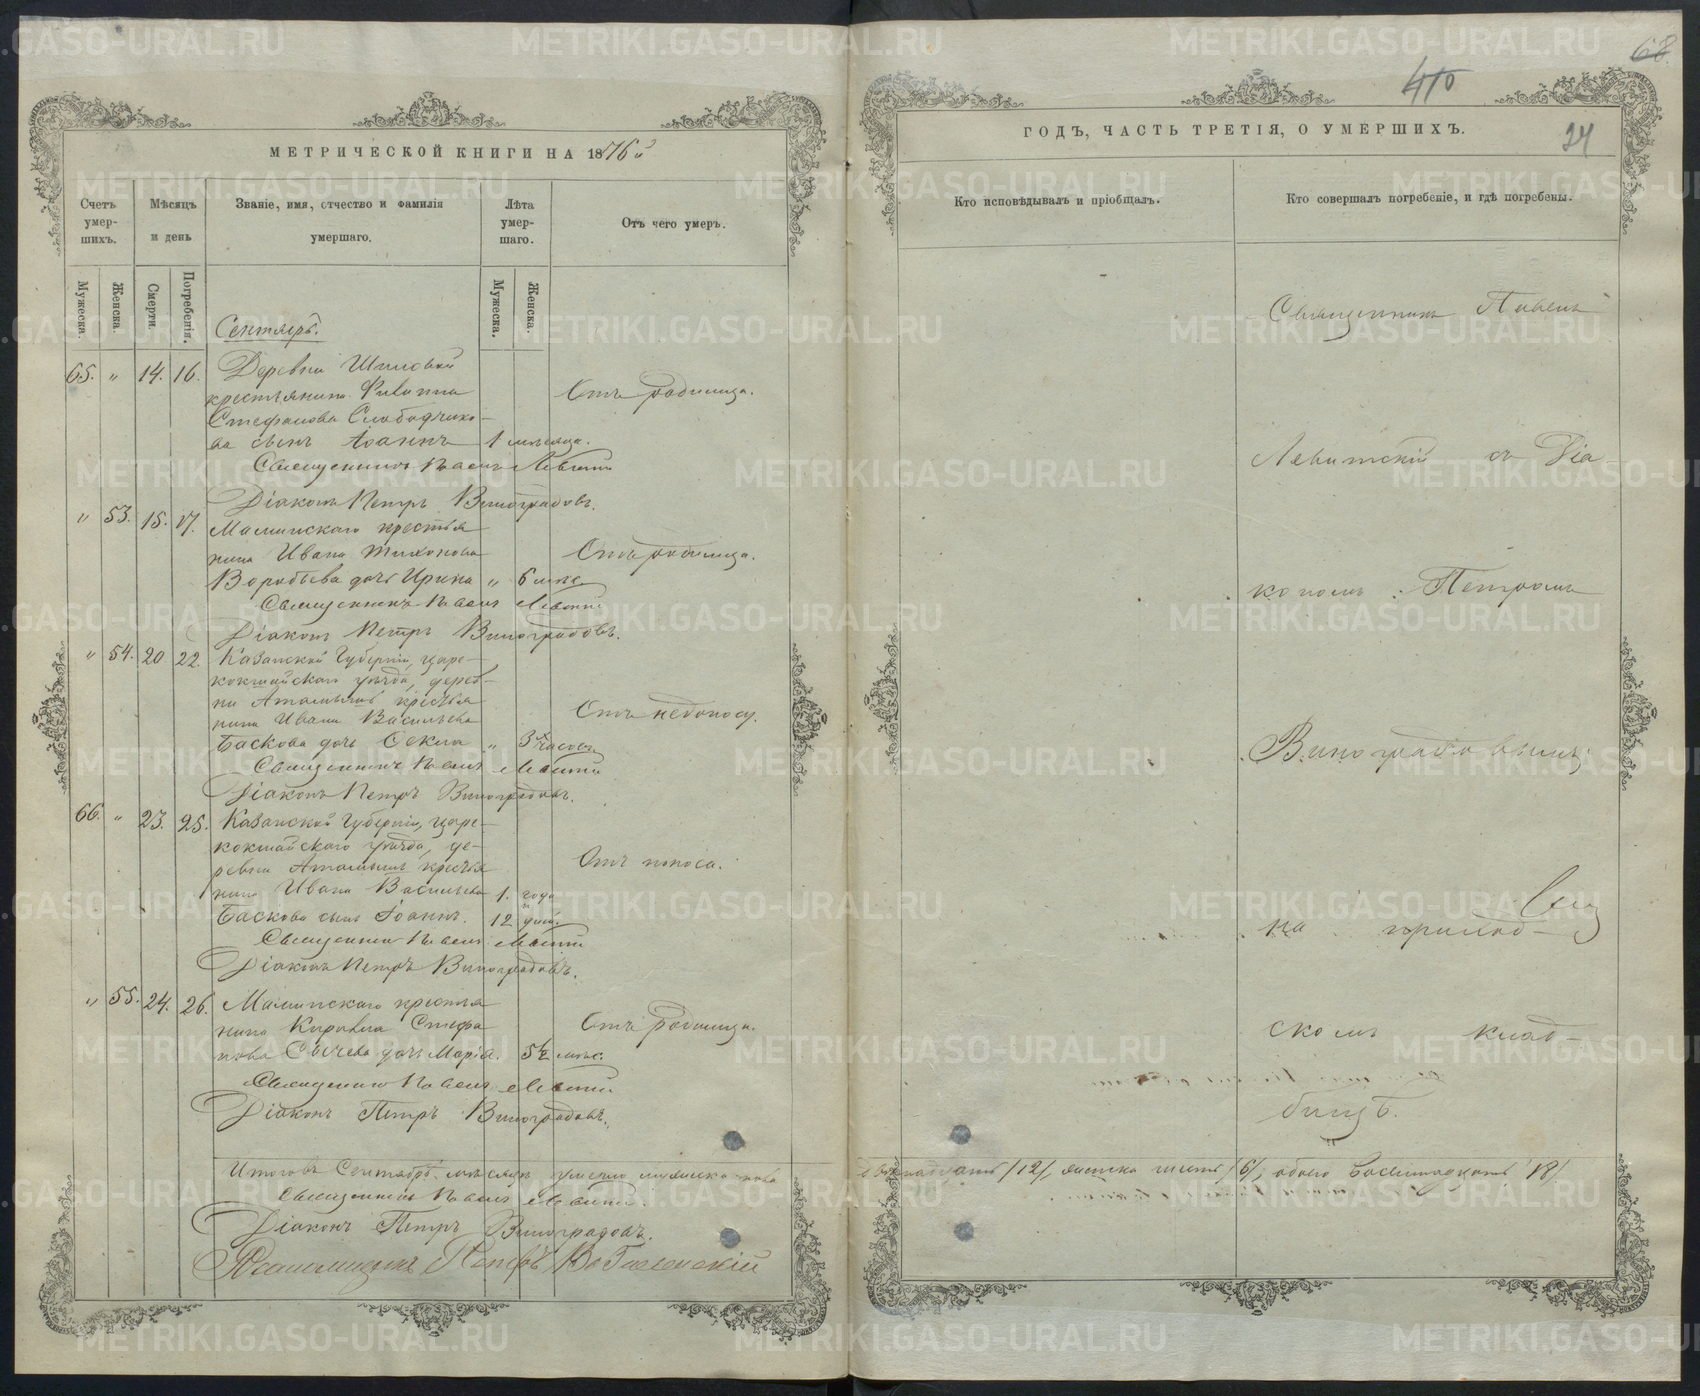 METRIKI.GASO-URAL.RU
МЕТРИЧЕСКОЙ КНИГИ НА 1876й
Счетъ умер-шихъ.
Мѣсяцъ и день
Званіе, имя, отчество и фамилія умершаго.
Лѣта умер-шаго.
Отъ чего умеръ.
Мужеска.
Женска.
Смерти.
Погребенія.
Мужеска.
Женска.
Сентябрь.
65. " 14. 16. Деревни
крестьянина
Стефанова Слободчико-
ва сынъ Іоаннъ 1 мѣсяца.
Отъ родимца.
Священникъ Павелъ Левитскій
Діаконъ Петръ Виноградовъ.
" 53. 15. 17. Маминскаго крестья
нина Ивана Тихонова
Воробьева дочь Ирина " 6 мѣс
Отъ родимца.
Священникъ Павелъ
Діаконъ Петръ Виноградовъ.
" 54. 20 22. Казанской Губерніи, царе-
кокшайскаго уѣзда, дерев-
ни крестья
нина Ивана Васильева
Баскова дочь Ѳекла " 3 часовъ
Отъ недоносу.
Священникъ Павелъ
Діаконъ Петръ Виноградовъ.
66. " 23. 25. Казанской Губерніи, царе-
кокшайскаго уѣзда, де-
ревни крестья
нина Ивана Васильева 1. года
Баскова сынъ Іоаннъ. 12 дней.
Отъ поноса.
Священникъ Павелъ
Діаконъ Петръ Виноградовъ.
" 55. 24. 26. Маминскаго крестья
нина Кирилла Стефа
нова Сычева дочь Марія. 5½ мѣс.
Отъ родимца.
Священникъ Павелъ
Діаконъ Петръ Виноградовъ.
Итого въ Сентябрѣ мѣсяцѣ умерло мужеска пола
Священникъ Павелъ
Діаконъ Петръ Виноградовъ.
Псаломщикъ Петръ
68
410
ГОДЪ, ЧАСТЬ ТРЕТІЯ, О УМЕРШИХЪ.
24
Кто исповѣдывалъ и пріобщалъ.
Кто совершалъ погребеніе, и гдѣ погребены.
Священникъ Павелъ
Левитскій съ Діа-
кономъ Петромъ
Виноградовымъ
на приход-
скомъ клад-
бищѣ.
двѣнадцать /12/, женска шесть /6/, обоего восемнадцать /18/.